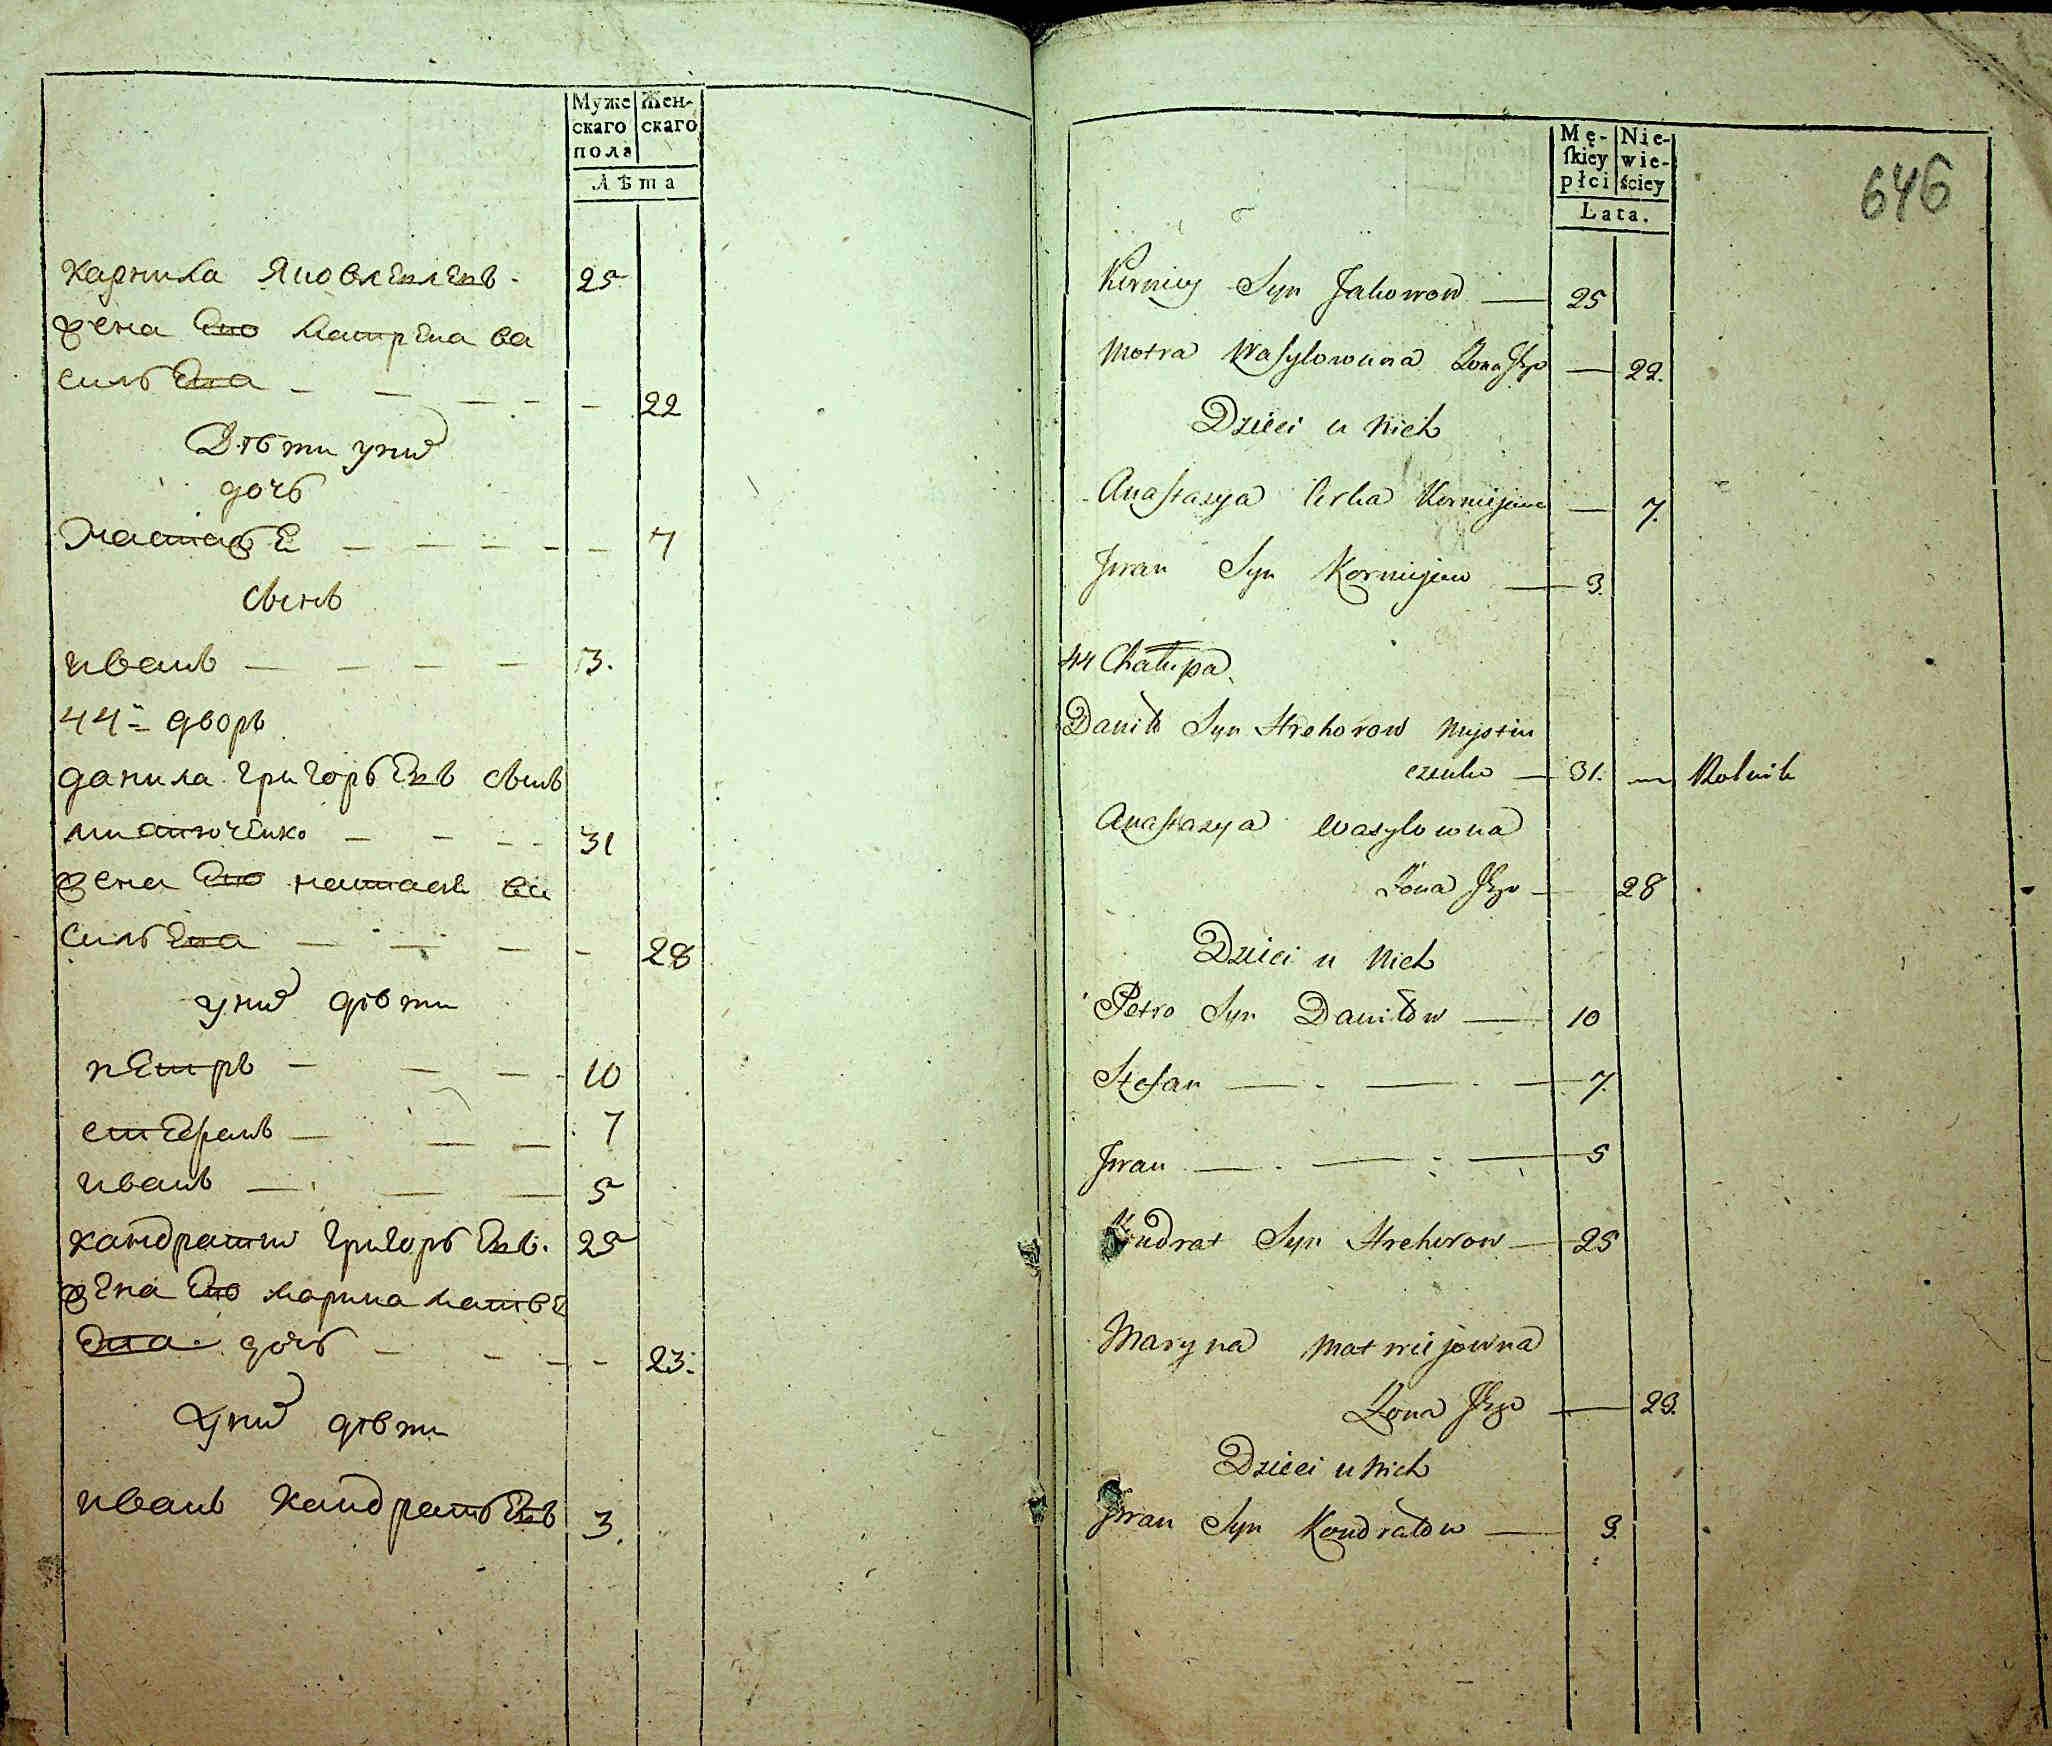 Муже
скаго
пола
Жен-
скаго
Лѣта
карнила Яковлевлевъ. 25
жена ево матрена ва
сильева — — — — — 22
Дѣти у них
дочь
Настасе — — — — — 7
сынъ
иванъ — — — — 3.
44й дворъ
данила григорьевъ сынъ
митюченко — — — — 31
жена ево настася ва
сильева — — — — — 28
у них дѣти
петръ — — — 10
стефанъ — — — 7
иванъ — — — 5
кандратий григорьевъ. 25
жена ево марина матве
ева дочь — — — — 23.
у них дѣти
иванъ кандратьевъ 3.
646
Mę-
skiey
płci
Nie-
wie-
ściey
Lata.
Kerniey Syn Jakowow — 25
Motra Wasylowna Żona Jego — 22.
Dzieci u Nich
Anastazya Corka Kerniejowa — 7.
Jwan Syn Korniejow — 3.
44 Chałupa
Daniło Syn Hrehorow Mystiu
czenko — 31. — Rolnik
Anastazya Wasylowna
Żona Jego — 28
Dzieci u Nich
Petro Syn Daniłow — 10
Stefan — — — 7.
Jwan — — — 5
Kondrat Syn Hrehorow — 25
Maryna Matwiejowna
Żona Jego — 23.
Dzieci u Nich
Jwan Syn Kondratow — 3.